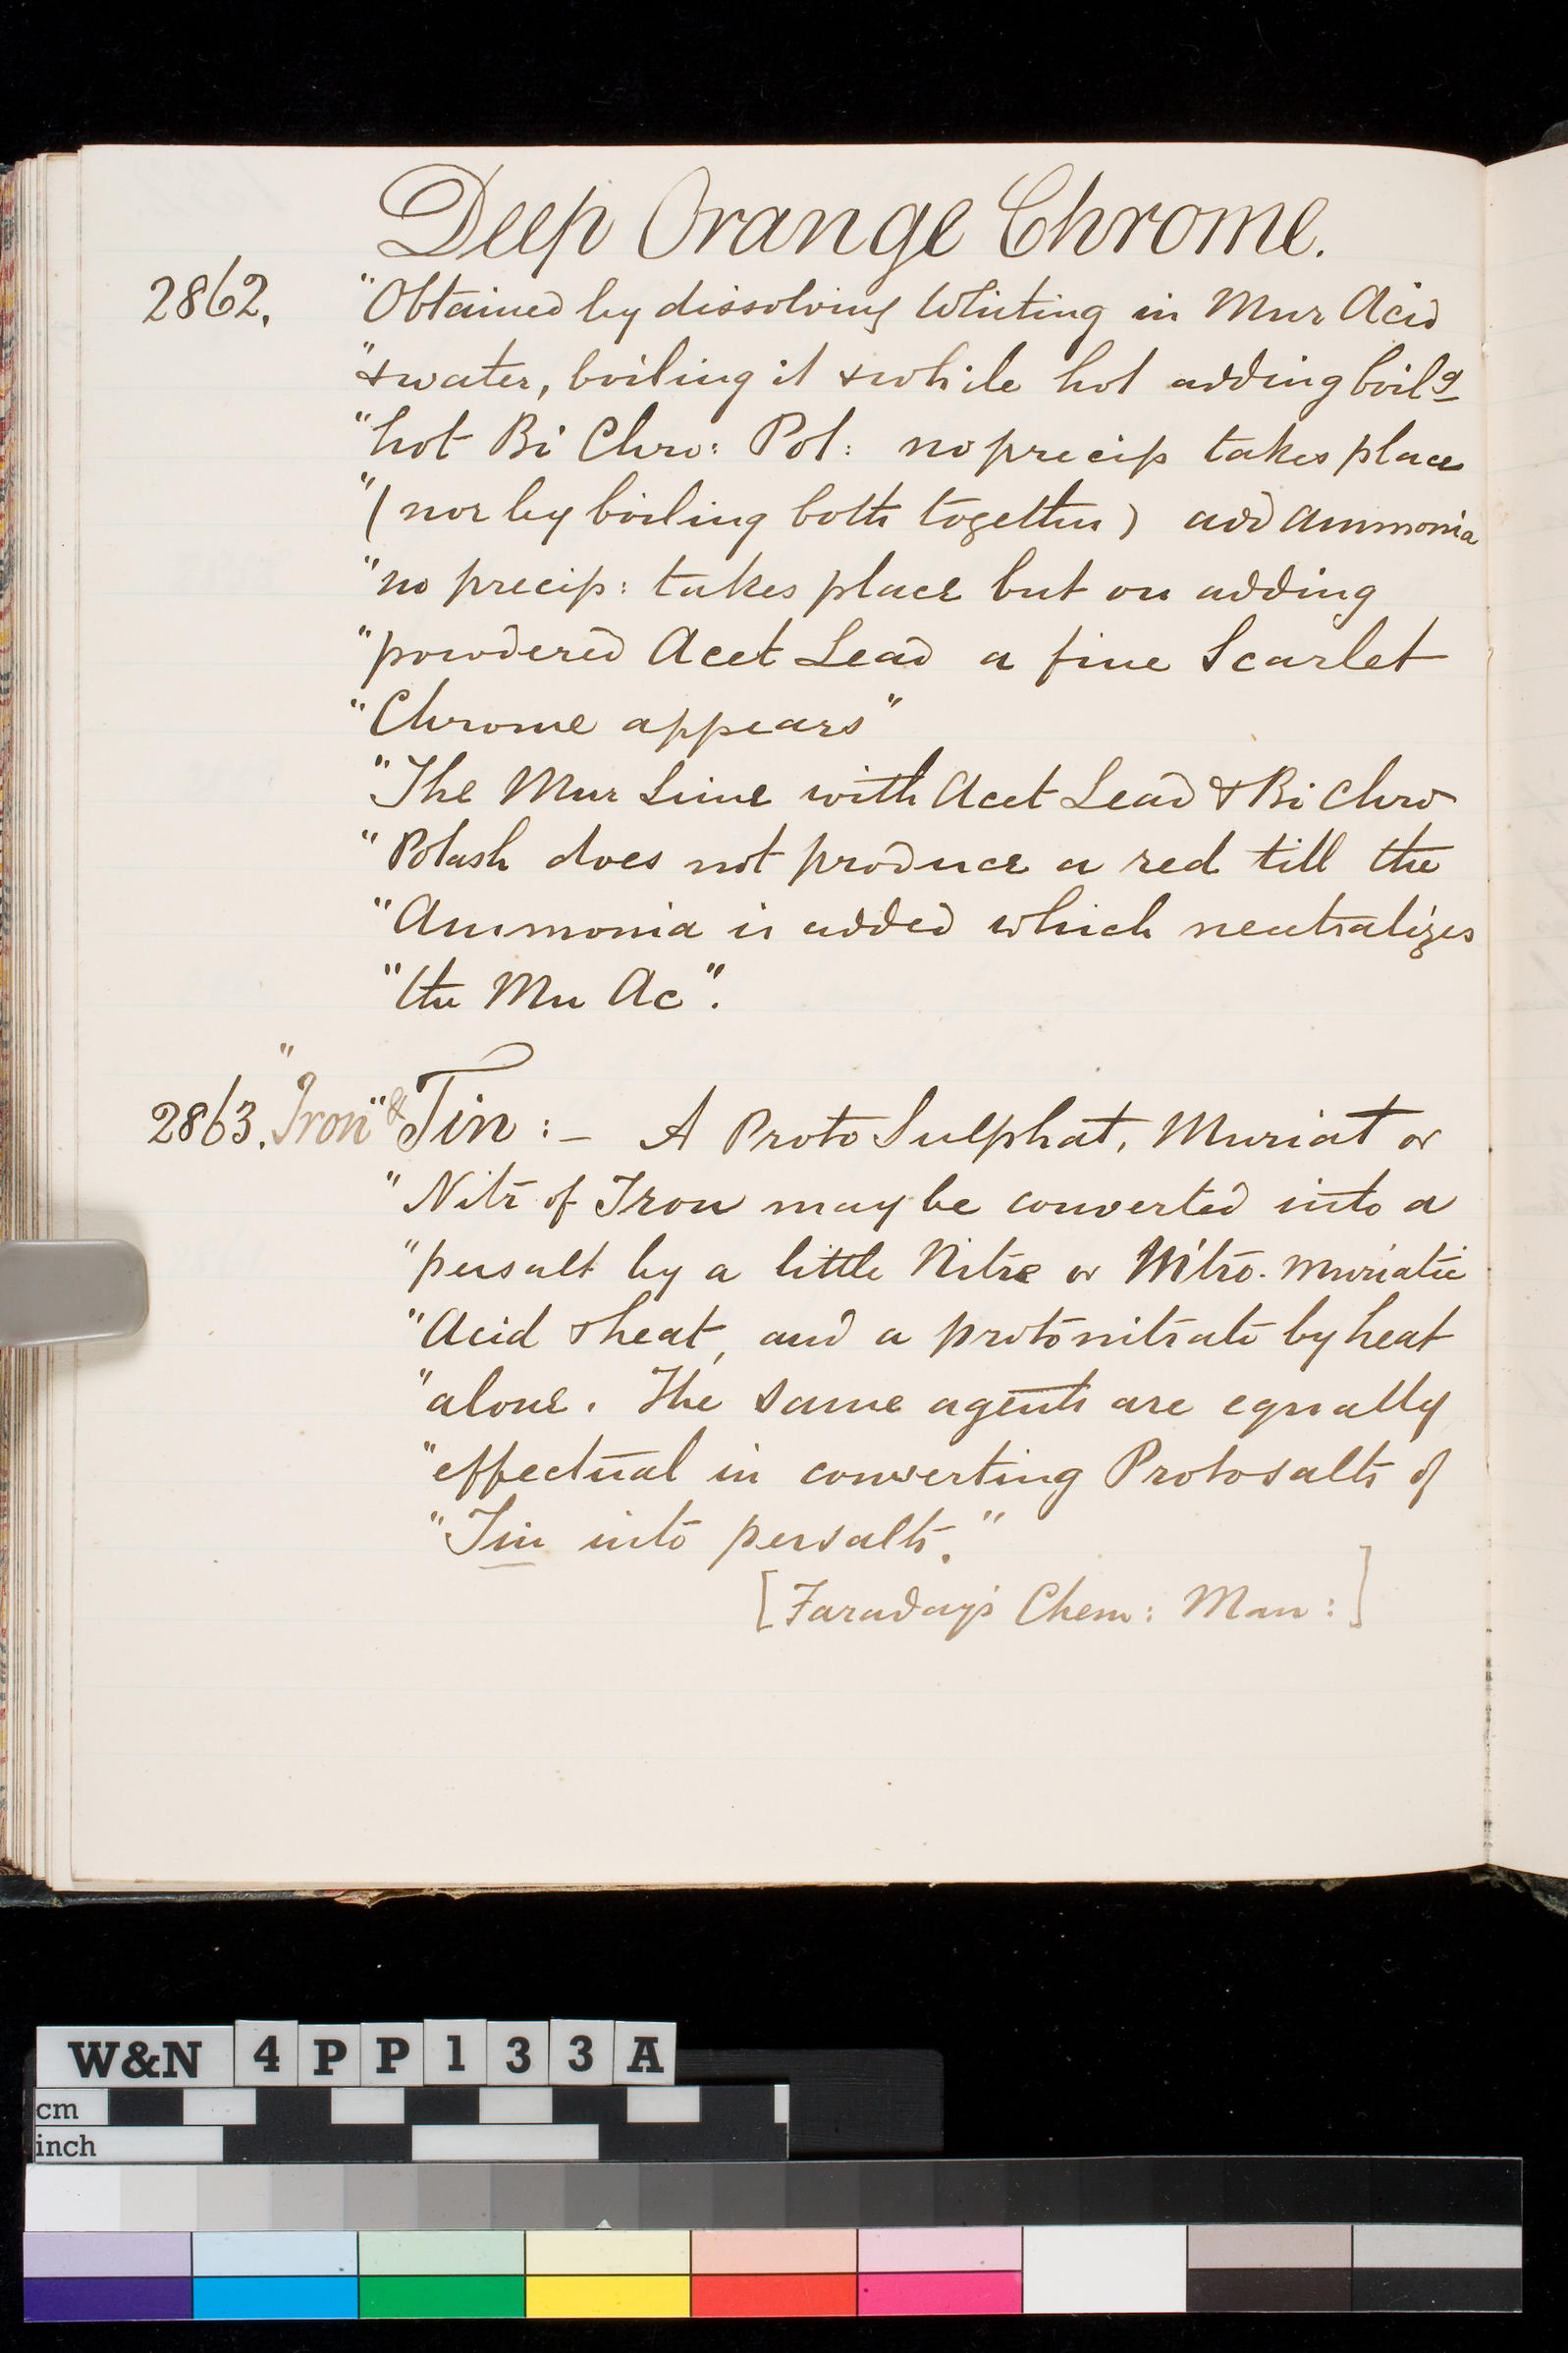 Deep Orange Chrome.
2862. "Obtained by dissolving Whiting in Mur Acid
"& water, boiling it & while hot adding boilg
"hot Bi Chro: Pot: no precip takes place
"(nor by boiling both together) add Ammonia
"no precip: takes place but on adding
"powdered Acet Lead a fine Scarlet
"Chrome appears"
"The Mur Lime with Acet Lead & Bi Chro
"Potash does not produce a red till the
"Ammonia is added which neutralizes
"the Mu Ac".
2863. "Iron" & Tin :– A Proto Sulphat, Muriat or
"Nitr of Iron may be converted into a
"persalt by a little Nitre or Nitro. Muriatic
"Acid & heat, and a protonitrate by heat
"alone. The same agents are equally
"effectual in converting Protosalts of
"Tin into persalts."
[Faraday's Chem: Man:]
W&N 4PP133A
cm
inch